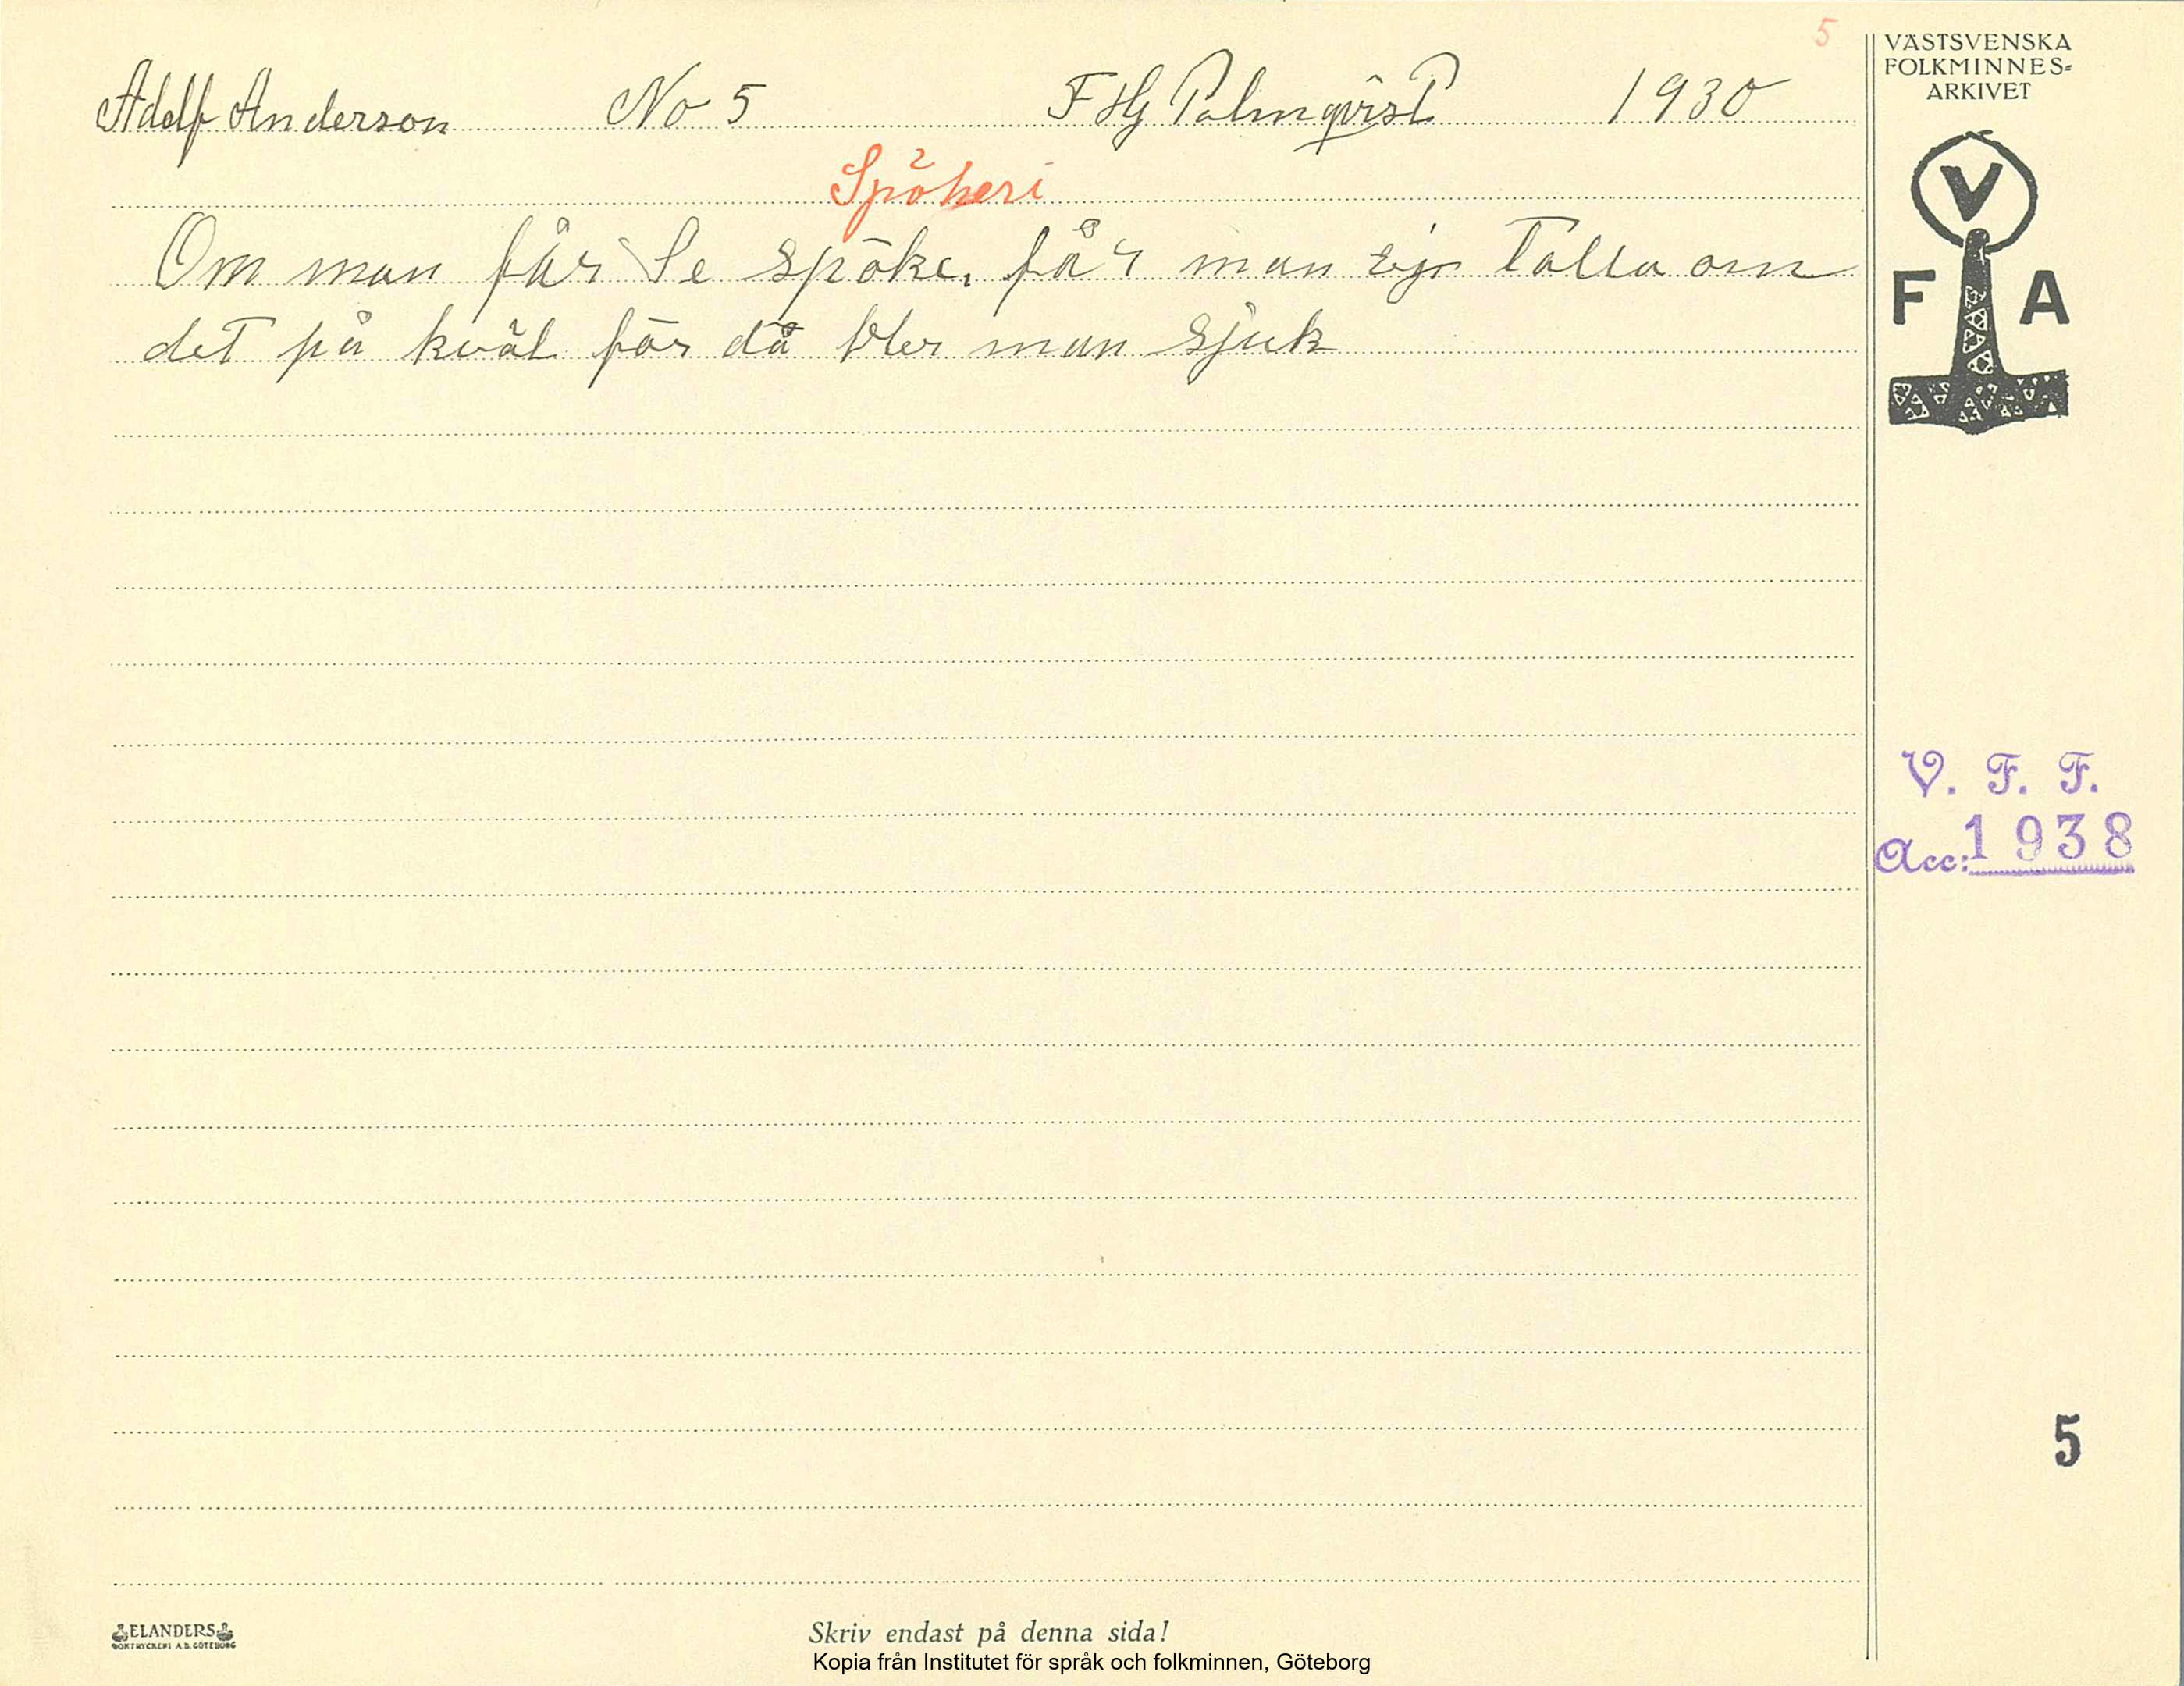 5
Adolf Anderson No 5 F Hj Palmqvist 1930
Spökeri
Om man får Se spöke, får man ejn talla om
det på kväl för då bler man sjuk
VÄSTSVENSKA
FOLKMINNES-
ARKIVET
V
F A
V. F. F.
Acc: 1938
5
ELANDERS
BOKTRYCKERI A.B. GÖTEBORG
Skriv endast på denna sida!
Kopia från Institutet för språk och folkminnen, Göteborg